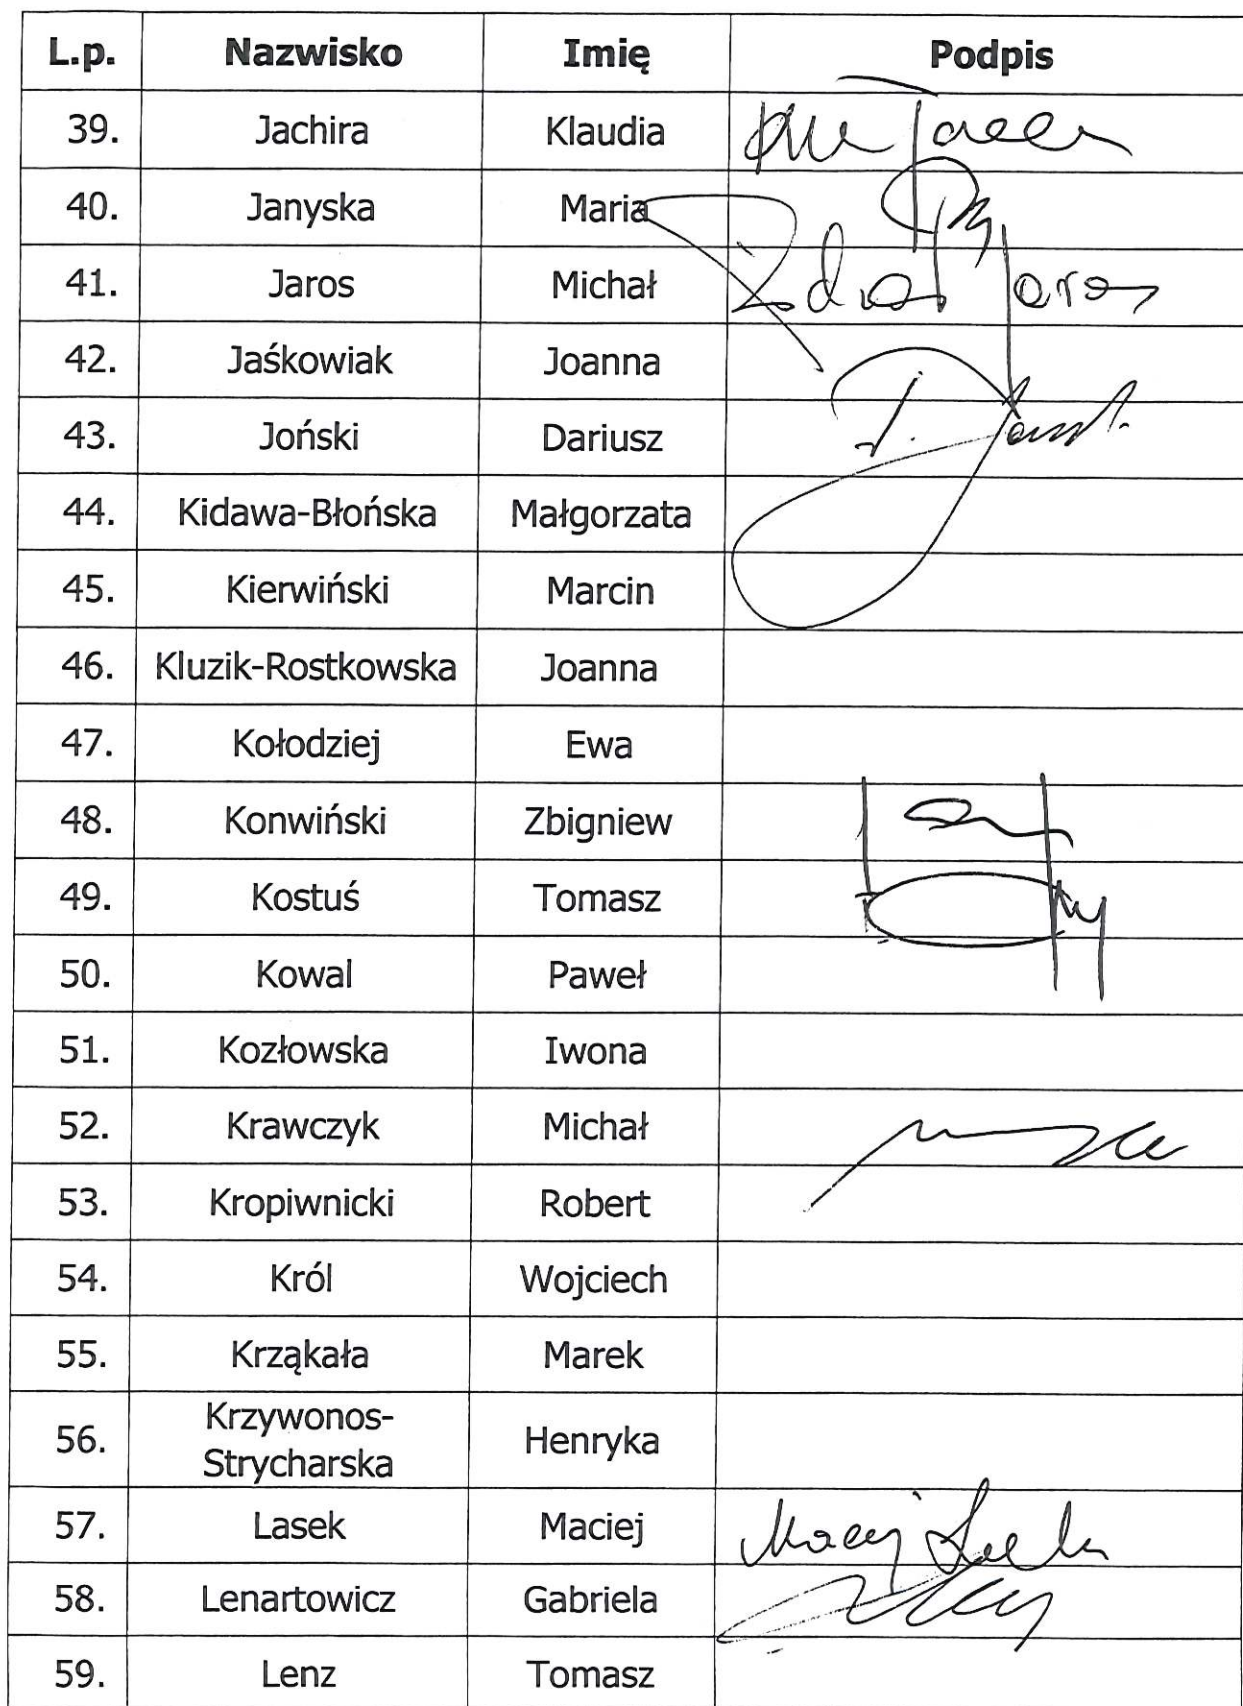 L.p. Nazwisko Imię Podpis
39. Jachira Klaudia
40. Janyska Maria
41. Jaros Michał
42. Jaśkowiak Joanna
43. Joński Dariusz
44. Kidawa-Błońska Małgorzata
45. Kierwiński Marcin
46. Kluzik-Rostkowska Joanna
47. Kołodziej Ewa
48. Konwiński Zbigniew
49. Kostuś Tomasz
50. Kowal Paweł
51. Kozłowska Iwona
52. Krawczyk Michał
53. Kropiwnicki Robert
54. Król Wojciech
55. Krząkała Marek
56. Krzywonos-
Strycharska Henryka
57. Lasek Maciej Maciej Lasek
58. Lenartowicz Gabriela
59. Lenz Tomasz